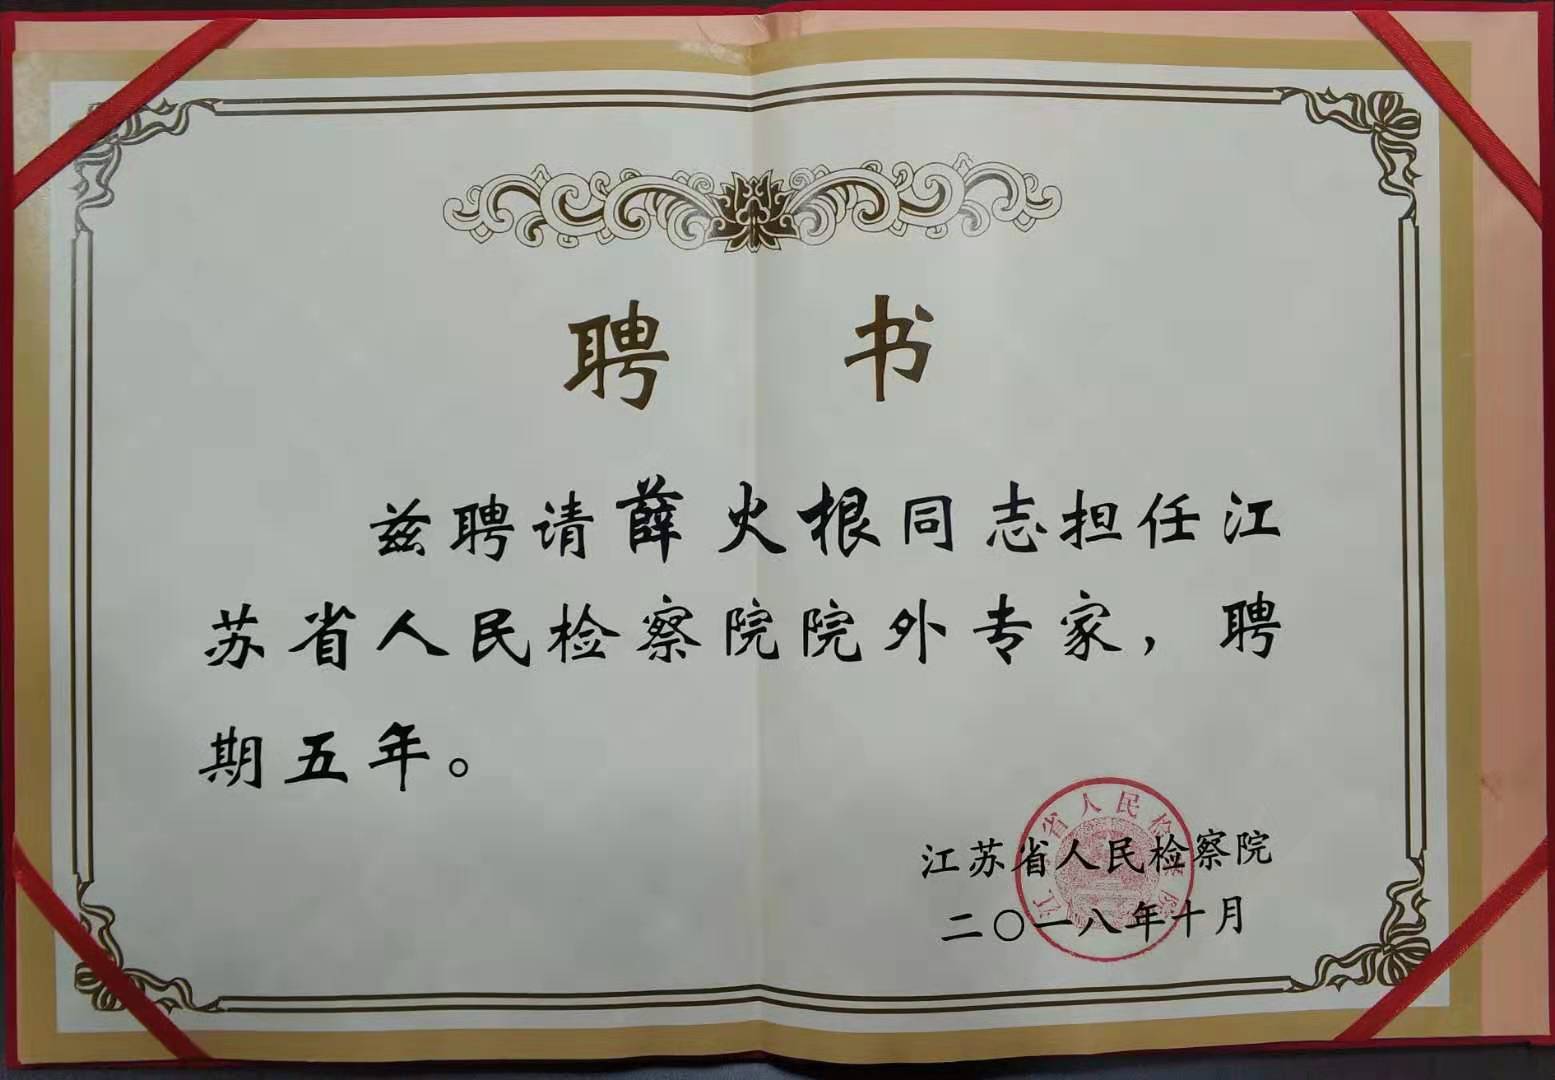 聘书
兹聘请薛火根同志担任江
苏省人民检察院院外专家，聘
期五年。
江苏省人民检察院
二〇一八年十月
江苏省人民检察院